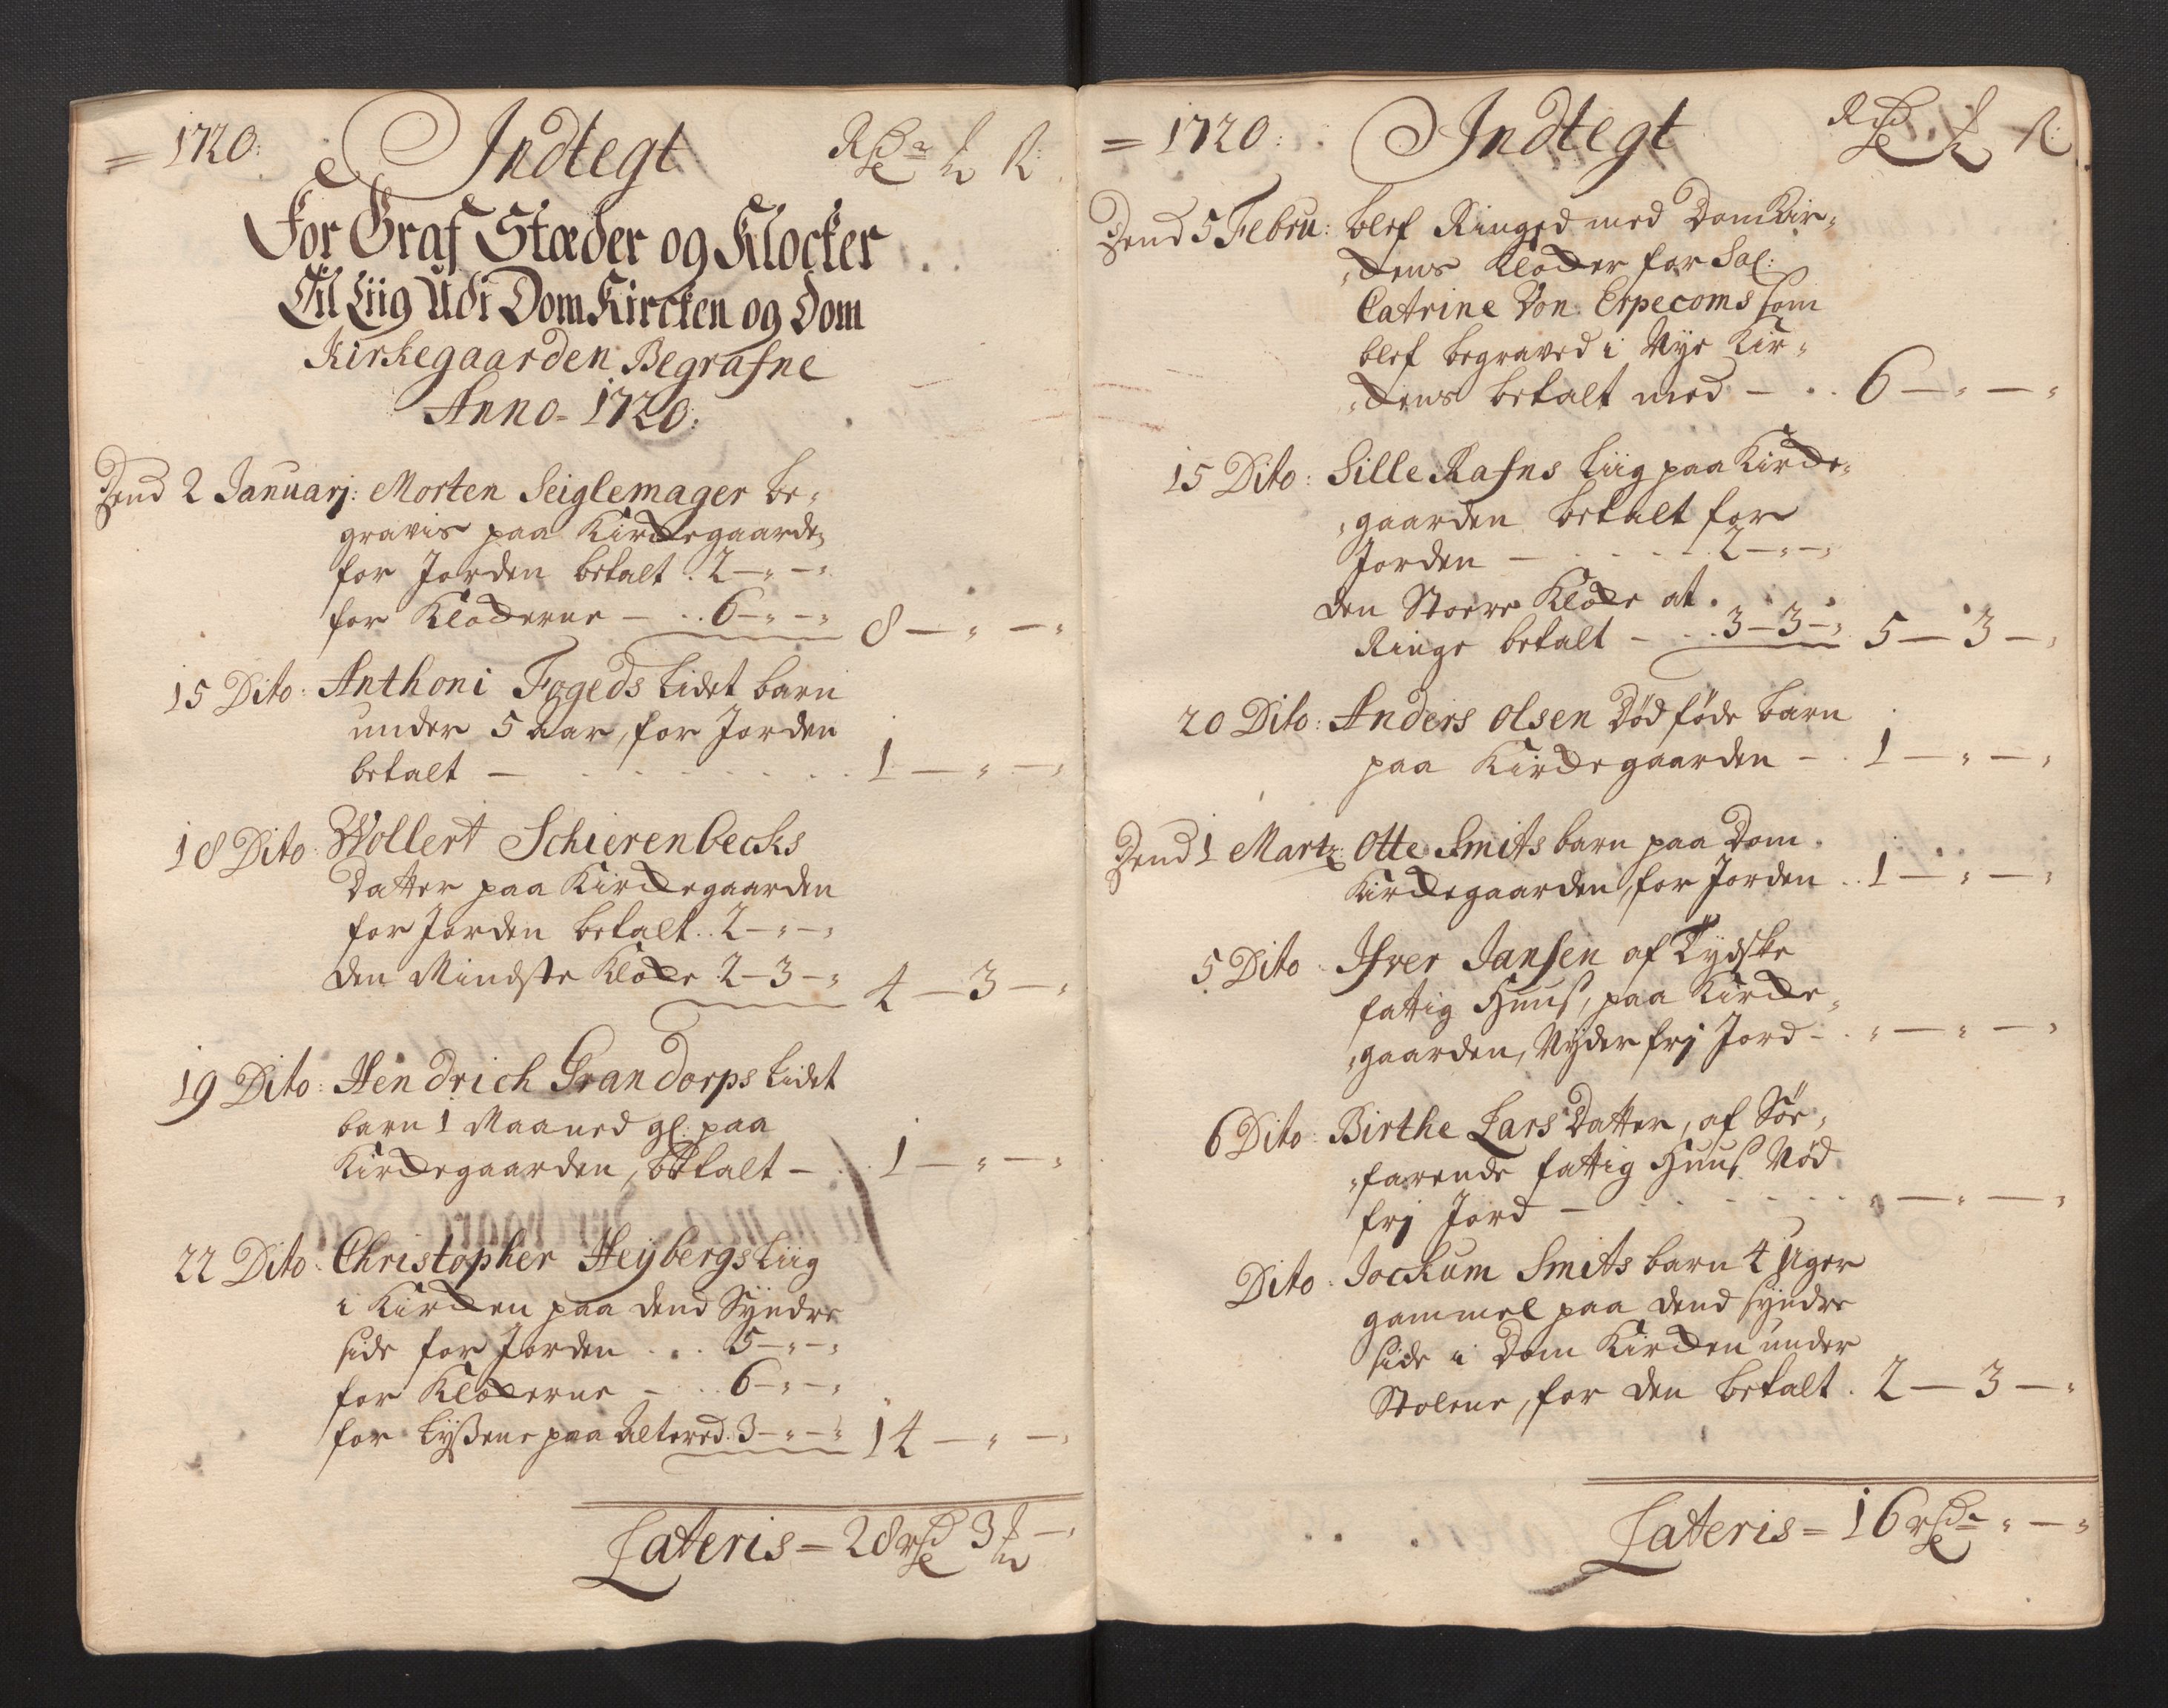 = 1720: Indtegt Rdr ℔ ß
For Graf Stæder og Klocker
Til Liig Udi Dom Kircken og Dom
Kirkegaarden Begrafne
Anno = 1720:
Dend 2 Januarj: Morten Seiglemager be-
gravis paa Kirckegaarde,
for Jorden betalt . 2 — " — "
for Klockerne — . . 6 — " — " 8 — " — "
15 Dito: Anthoni Fogeds Lidet barn
under 5 aar, for Jorden
betalt — . . . . . . 1 — " — "
18 Dito: Wollert Schierenbecks
Datter paa Kirckegaarden
for Jorden betalt . . 2 — " — "
den Mindste Klocke 2 — 3 — " 4 — 3 — "
19 Dito: Hendrich Grandorps Lidet
barn 1 Maaned gl: paa
Kirckegaarden, betalt — . . 1 — " — "
22 Dito: Christopher Heybergs Liig
i Kircken paa dend Syndre
side for Jorden . . . 5 — " — "
for Klockerne — . . 6 — " — "
for Lyßene paa Altered . 3 — " — " 14 — " — "
Lateris = 28 rdr 3 ℔ — "
= 1720: Indtegt Rdr ℔ ß
Dend 5 Febru: blef Ringed med Dom Kir-
ckens Klocker for Sal:
Catrine Von Erpecoms som
blef begraved i Nye Kir-
ckens betalt med — . . 6 — " — "
15 Dito: Sille Rafns Liig paa Kircke-
gaarden betalt for
Jorden — . . . . 2 — " — "
den Stoere Klocke at
Ringe betalt — . . 3 — 3 — " 5 — 3 — "
20 Dito: Anders Olsen Dødføde barn
paa Kirckegaarden — . 1 — " — "
Dend 1 Marty: Otte Smits barn paa Dom
Kirckegaarden, for Jorden . . 1 — " — "
5 Dito: Ifver Jansen af Tydske
fattig Huus, paa Kircke-
gaarden, Nyder frj Jord — . " — " — "
6 Dito: Birthe Lars Datter, af Søe-
farende fattig Huus Nød
frj Jord — . . . . . " — " — "
Dito: Jockum Smits barn 4 Uger
gammel paa dend syndre
side i Dom Kircken under
Stolene, for den betalt . 2 — 3 — "
Lateris = 16 rdr " — "